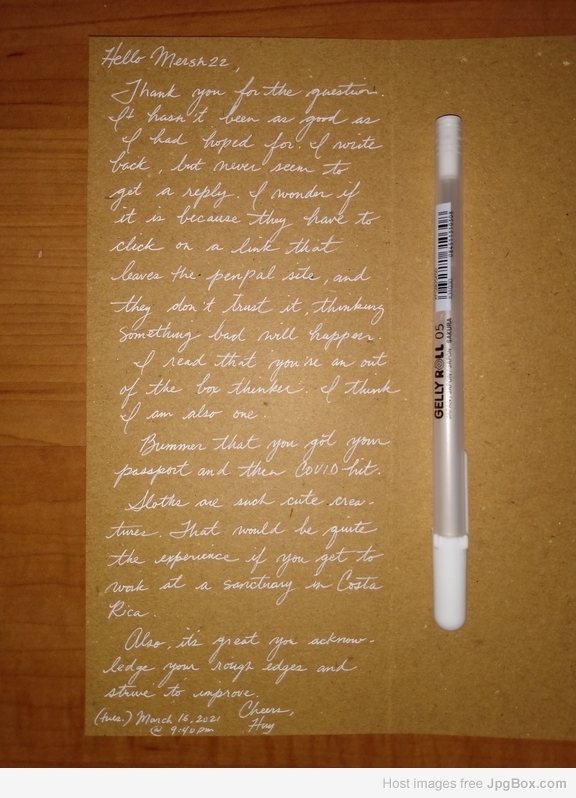 Hello Mersh22,
Thank you for the question.
It hasn't been as good as
I had hoped for. I write
back, but never seem to
get a reply. I wonder if
it is because they have to
click on a link that
leaves the penpal site, and
they don't trust it, thinking
something bad will happen.
I read that you're an out
of the box thinker. I think
I am also one.
Bummer that you got your
passport and then COVID hit.
Sloths are such cute crea-
tures. That would be quite
the experience if you get to
work at a sanctuary in Costa
Rica.
Also, its great you acknow-
ledge your rough edges and
strive to improve.
Cheers,
Huy
(tues.) March 16, 2021
@ 9:40pm
GELLY ROLL 05
SAKURA
Host images free JpgBox.com